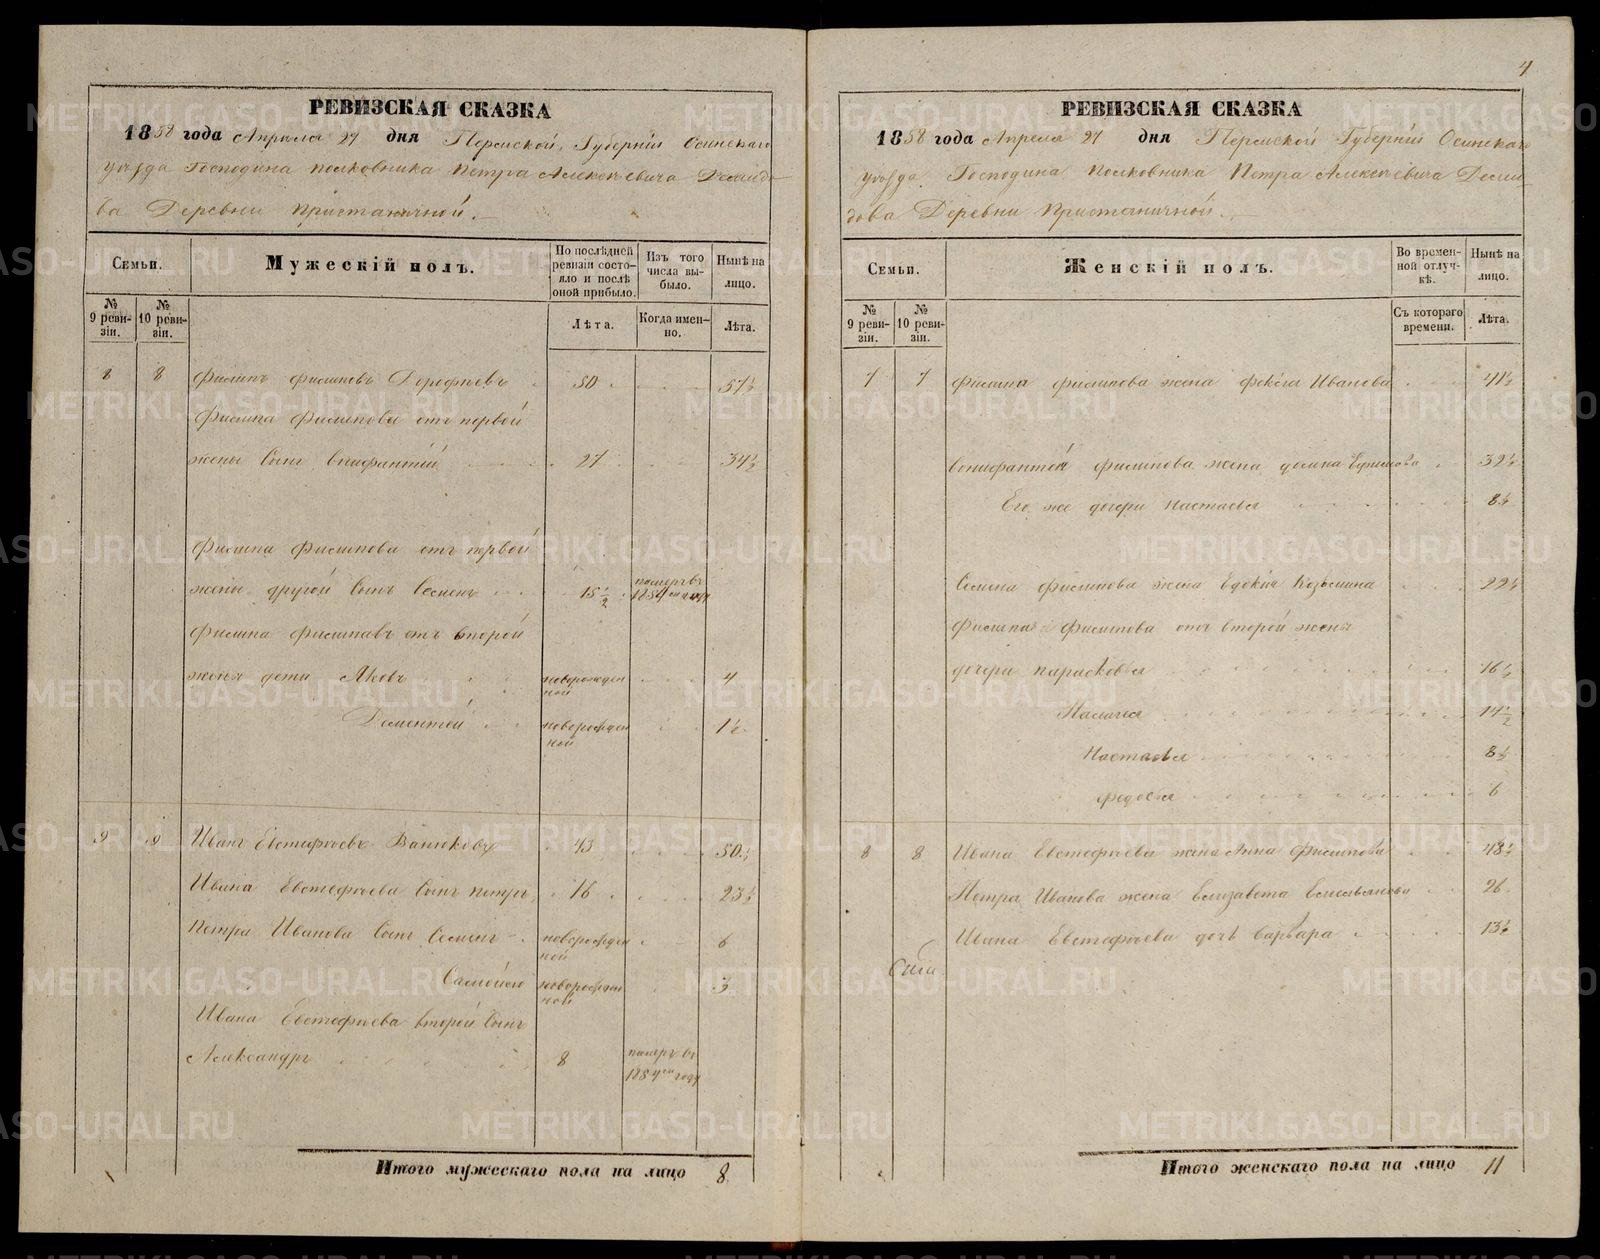 4
РЕВИЗСКАЯ СКАЗКА
1858 года Апреля 27 дня Пермской Губернiи Осинскаго
уѣзда Господина полковника Петра Алексѣевича Демидо-
ва Деревни Пристаничной.
Семьи.
Мужескiй полъ.
По послѣдней ревизiи состо-яло и послѣ оной прибыло.
Изъ того числа вы-было.
Нынѣ на лицо.
№ 9 реви-зiи.
№ 10 реви-зiи.
Лѣта.
Когда имен-но.
Лѣта.
8 8 Филипъ Филиповъ Дорофѣевъ 50 57½
Филипа Филипова отъ первой
жены Сынъ Внифантей 27 34½
Филипа Филипова отъ первой
жены другой Сынъ Семенъ 15½ померъ въ 1854 году
Филипа Филипавъ отъ второй
жены дети Яковъ новорожден ной 4
Дементей новорожден ной 1½
9 9 Иванъ Евстефѣевъ Ванюковъ 43 50½
Ивана Евстефѣева Сынъ петръ 16 23½
Петра Иванова Сынъ Семенъ новорожден ной 6
Самойло новорожден ной 3
Ивана Евстефѣева второй Сынъ
Александръ 8 померъ въ 1854 году
Итого мужескаго пола на лицо 8.
РЕВИЗСКАЯ СКАЗКА
1858 года Апреля 27 дня Пермской Губернiи Осинскаго
уѣзда Господина Полковника Петра Алексѣевича Деми-
дова Деревни Пристаничной.
Семьи.
Женскiй полъ.
Во времен-ной отлуч-кѣ.
Нынѣ на лицо.
№ 9 реви-зiи.
№ 10 реви-зiи.
Съ котораго времени.
Лѣта.
7 7 Филипа Филипова жена Фекла Иванова 41½
Вонифантей Филипова жена Ефимова 32½
Его же дочери Настасья 8½
Семена Филипова жена Едокия Козьмина 22½
Филипа Филипова отъ второй жены
дочери парасковья 16½
Палагея 14½
Настасья 8½
Федосья 6
8 8 Ивана Евстефѣева жена Анна Филипова 48½
Петра Иванова жена Елизавета Емельянова 26
Ивана Евстефѣева дочь Варвара 13½
Итого женскаго пола на лицо 11
METRIKI.GASO-URAL.RU